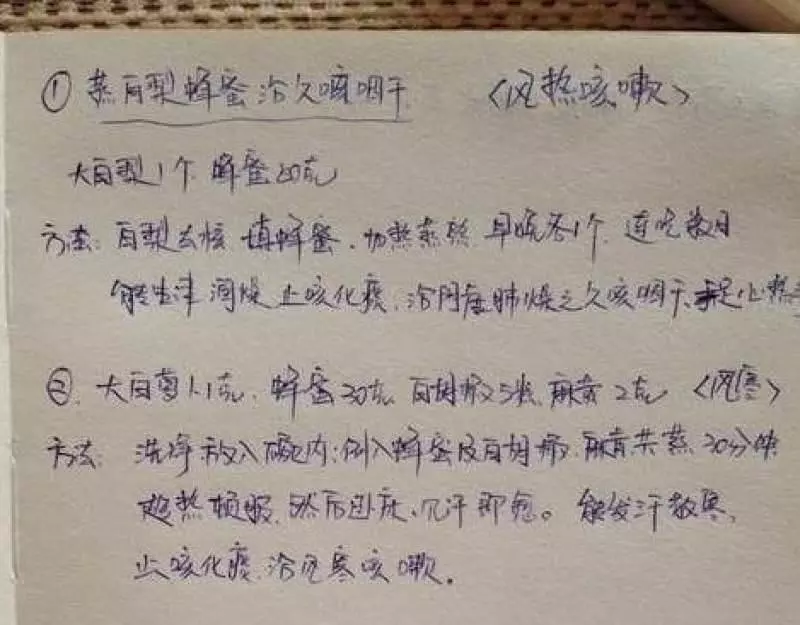 ① 蒸白梨蜂蜜治久咳咽干 〈风热咳嗽〉
大白梨1个 蜂蜜20克
方法: 白梨去核 填蜂蜜、加热蒸熟 早晚各1个 连吃数日
能生津润燥 止咳化痰、治阴虚肺燥之久咳咽干、手足心热
② 大白萝卜1克、蜂蜜30克 白胡椒5粒、麻黄2克 〈风寒〉
方法: 洗净放入碗内: 倒入蜂蜜及白胡椒、麻黄共蒸30分钟
趁热顿服、然后卧床、见汗即愈。能发汗散寒,
止咳化痰、治风寒咳嗽。